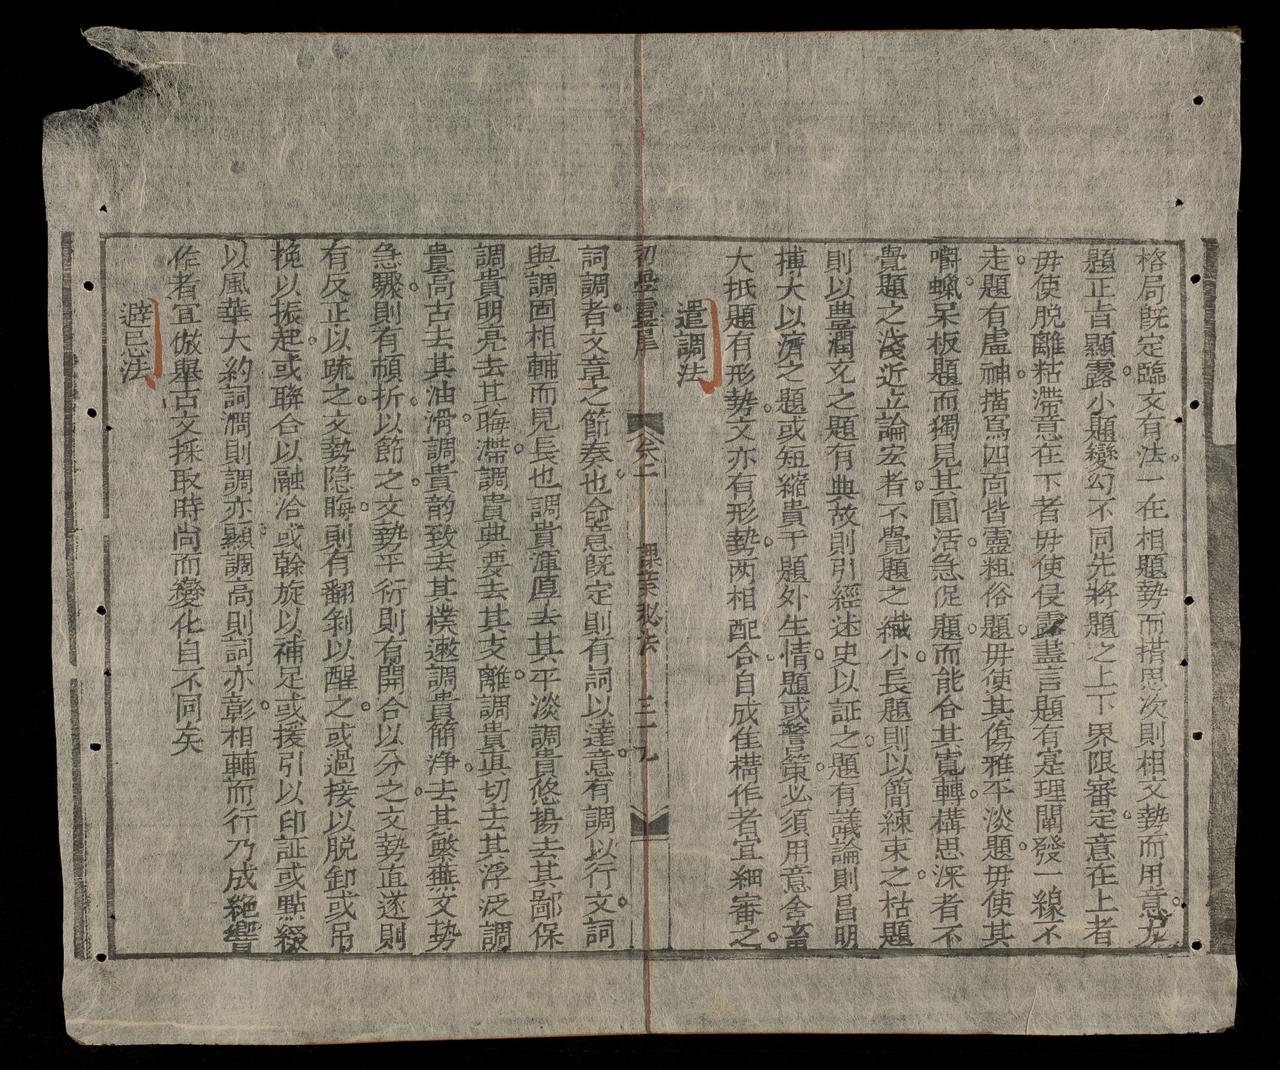 格局既定臨文有法一在相題勢而搆思次則相文勢而用意尤
題正旨顯露小題變幻不同先將題之上下界限審定意在上者
毋使脫離粘滯意在下者毋使侵露盡言題有寔理闡發一線不
走題有虛神描寫四面皆靈粗俗題毋使其傷雅平淡題毋使其
嚼蠟呆板題而獨見其圓活急促題而能合其寬轉構思深者不
覺題之淺近立論宏者不覺題之纎小長題則以簡練束之枯題
則以豊潤充之題有典故則引經述史以証之題有議論則昌明
搏大以濟之題或短縮貴于題外生情題或警策必須用意含畜
大抵題有形勢文亦有形勢两相配合自成佳構作者宜細審之
遣調法
初學靈犀 卷二 課業秘法 三十九
詞調者文章之節奏也命意既定則有詞以達意有調以行文詞
與調固相輔而見長也調貴渾厚去其平淡調貴悠揚去其鄙保
調貴明亮去其晦滯調貴典要去其支離調貴真切去其浮泛調
貴高古去其油滑調貴韵致去其樸遬調貴簡净去其繁蕪文势
急驟則有頓折以節之文势平衍則有開合以分之文势直遂則
有反正以疏之文势隐晦則有翻剝以醒之或過接以脫卸或吊
挽以振起或聯合以融洽或斡旋以補足或援引以印証或點綴
以風華大約詞潤則調亦顯調高則詞亦彰相輔而行乃成絶響
作者宜倣舉古文採取時尚而變化自不同矣
避忌法